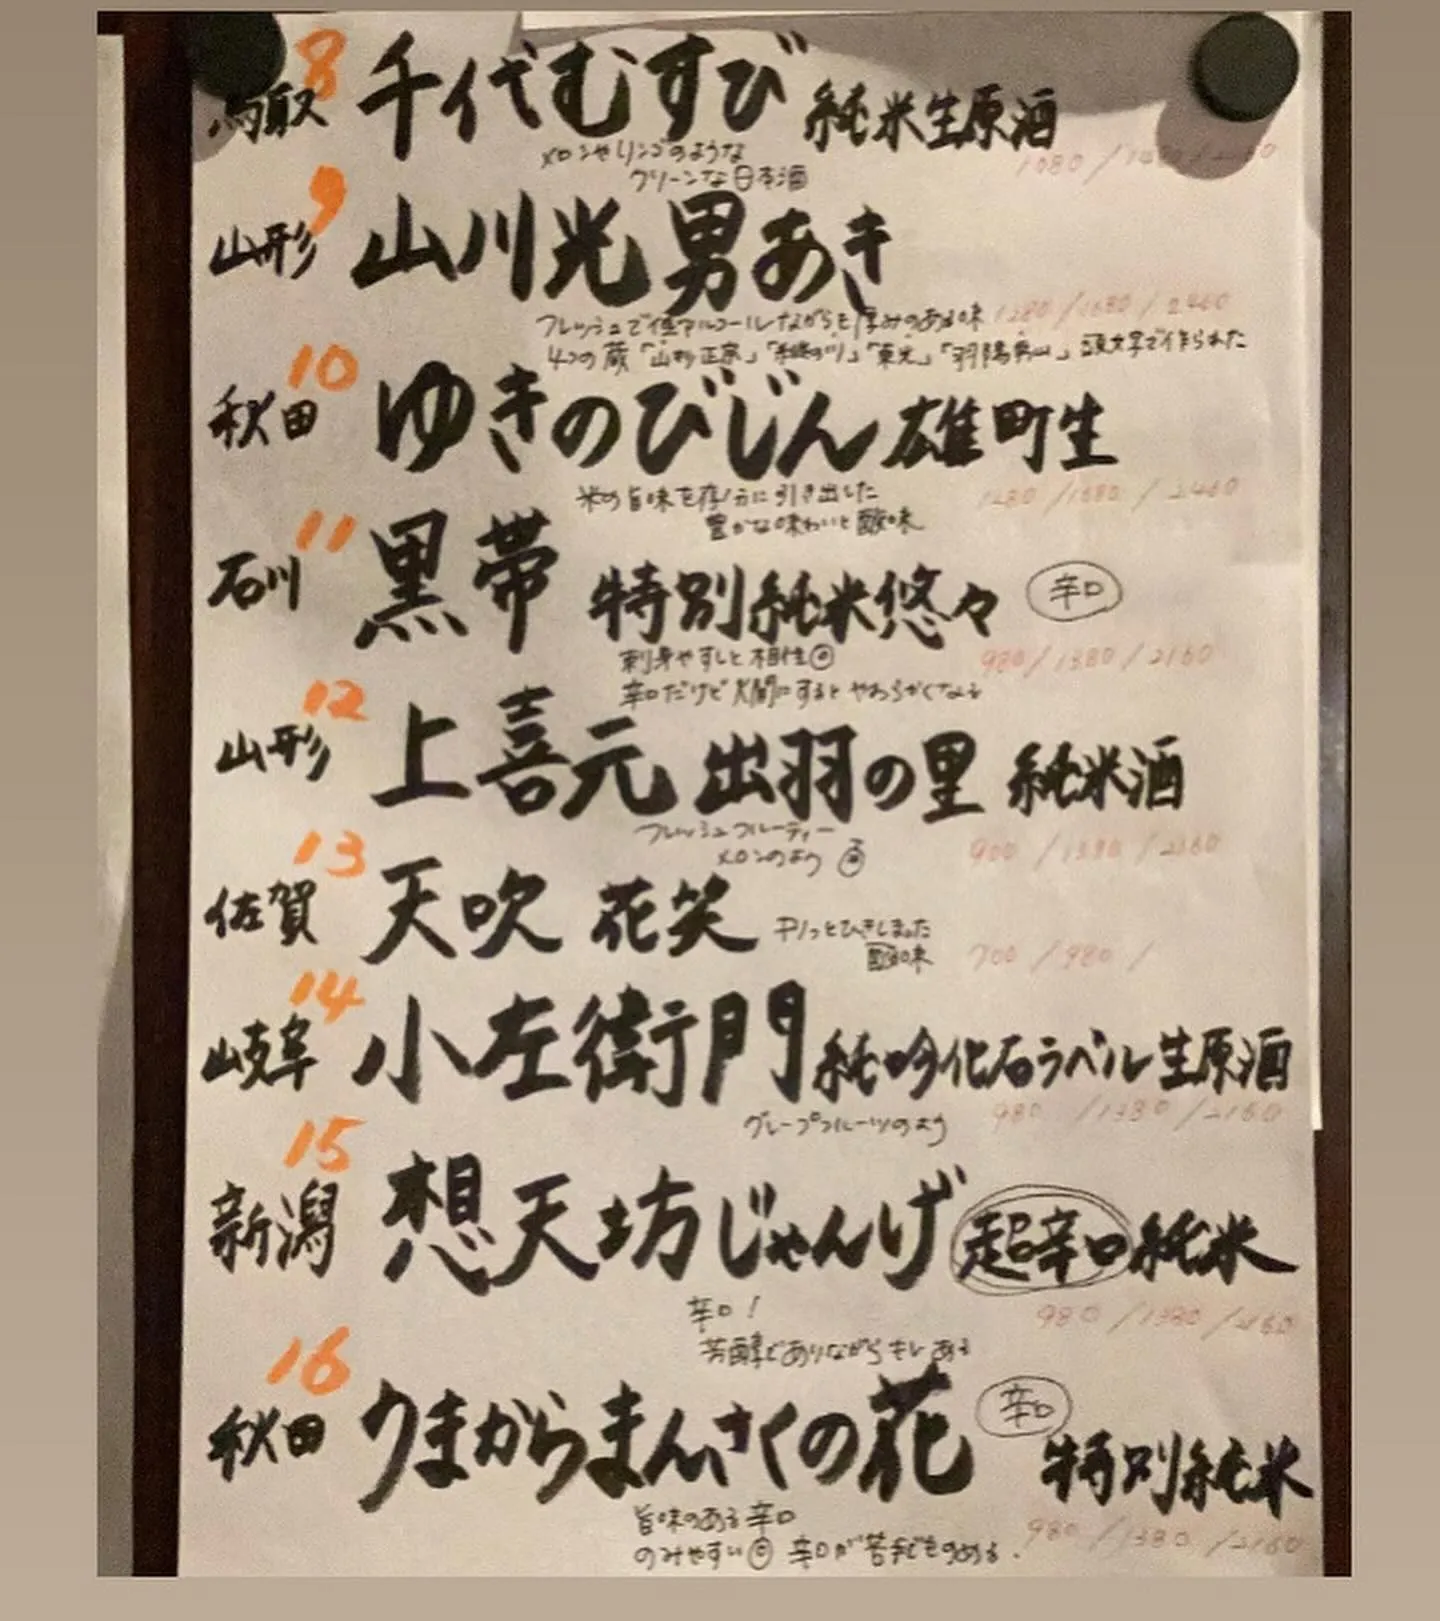 8
鳥取 千代むすび 純米生原酒
メロンやリンゴのような
グリーンな日本酒
1080 /
9
山形 山川光男あき
フレッシュで低アルコールながらも厚みのある味 1280 / 1680 / 2460
4つの蔵「山形正宗」「楯野川」「東光」「羽陽男山」頭文字で作られた
10
秋田 ゆきのびじん 雄町生
米の旨味を存分に引き出した 1280 / 1680 / 2460
豊かな味わいと酸味
11
石川 黒帯 特別純米悠々 辛口
刺身やすしと相性◎ 980 / 1380 / 2160
辛口だけどお燗にするとやわらかくなる
12
山形 上喜元 出羽の里 純米酒
フレッシュフルーティー
メロンのよう 900 / 1380 / 2160
13
佐賀 天吹 花笑 キリッとひきしまった
酸味 700 / 980 /
14
岐阜 小左衛門 純吟化石ラベル生原酒
グレープフルーツのよう 980 / 1380 / 2160
15
新潟 想天坊じゃんげ 超辛口純米
辛口! 980 / 1380 / 2160
芳醇でありながらキレある
16
秋田 うまからまんさくの花 辛口
特別純米
旨味のある辛口 980 / 1380 / 2160
のみやすい◎ 辛口が苦手でものめる.